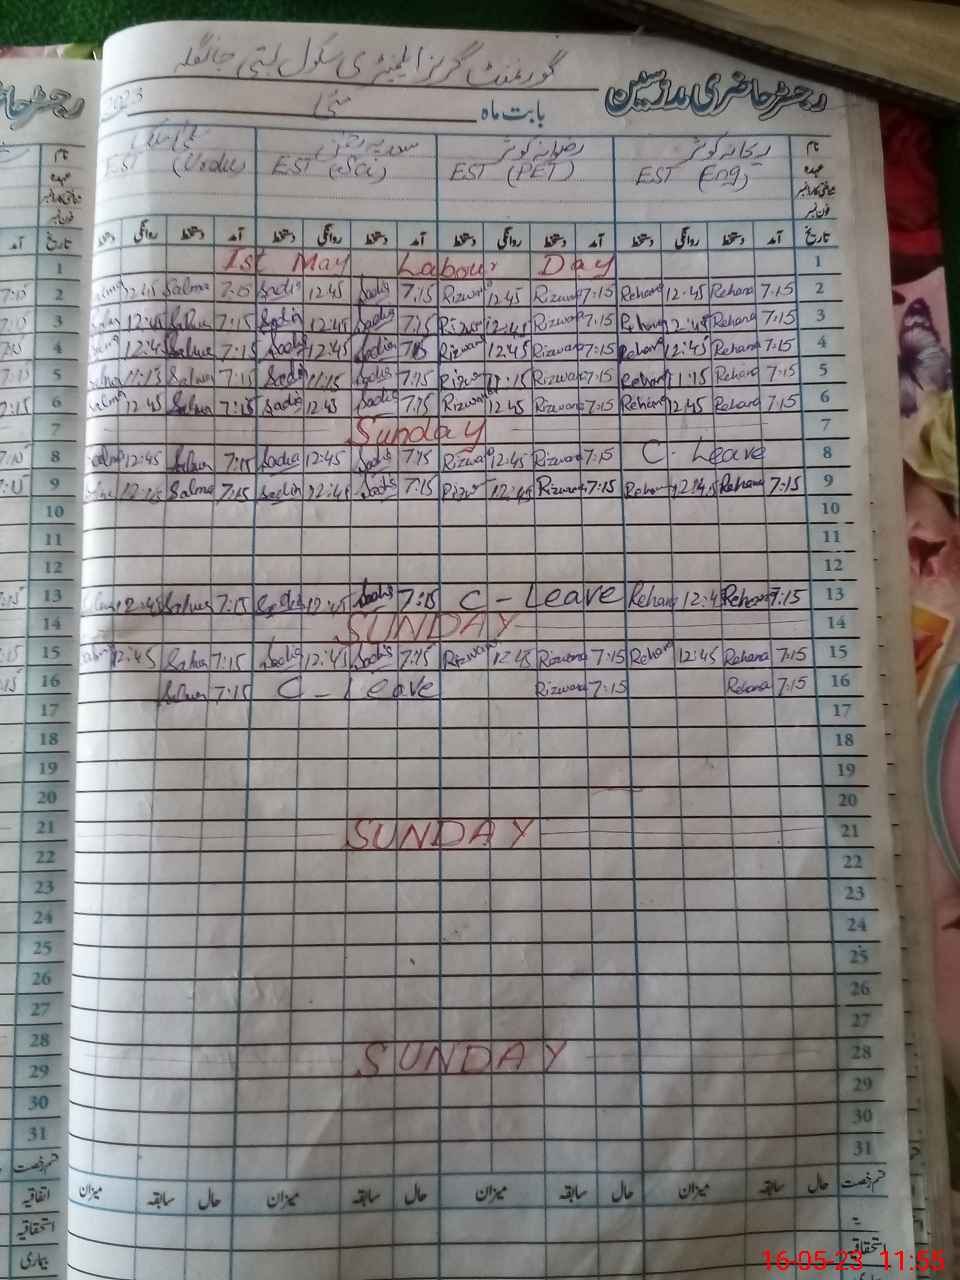 گورنمنٹ گرلز ایلیمنٹری سکول بستی جانگلہ
رجسٹر حاضری مدرسین
بابت ماہ مئی 2023
نام ریحانہ کوثر رضوانہ کوثر
عہدہ EST (Eng) EST (PET) EST (Sci) EST (Urdu)
فون نمبر
تاریخ آمد دستخط روانگی دستخط آمد دستخط روانگی دستخط آمد دستخط روانگی دستخط آمد دستخط روانگی دستخط
1 1st May Labour Day 1
2 12:45 Salma 7:15 Sadia 12:45 Sadia 7:15 Rizwana 12:45 Rizwana 7:15 Rehana 12:45 Rehana 7:15 2
3 12:45 Salma 7:15 Sadia 12:45 Sadia 7:15 Rizwana 12:45 Rizwana 7:15 Rehana 12:45 Rehana 7:15 3
4 12:45 Salma 7:15 Sadia 12:45 Sadia 7:15 Rizwana 12:45 Rizwana 7:15 Rehana 12:45 Rehana 7:15 4
5 Salma 7:15 Sadia 11:15 Sadia 7:15 Rizwana 11:15 Rizwana 7:15 Rehana 11:15 Rehana 7:15 5
6 Salma 12:45 Salma 7:15 Sadia 12:45 Sadia 7:15 Rizwana 12:45 Rizwana 7:15 Rehana 12:45 Rehana 7:15 6
7 Sunday 7
8 12:45 Salma 7:15 Sadia 12:45 Sadia 7:15 Rizwana 12:45 Rizwana 7:15 C. Leave 8
9 12:45 Salma 7:15 Sadia 12:45 Sadia 7:15 Rizwana 12:45 Rizwana 7:15 Rehana 12:45 Rehana 7:15 9
10 10
11 11
12 12
13 12:45 Salma 7:15 Sadia 12:45 Sadia 7:15 C - Leave Rehana 12:45 Rehana 7:15 13
14 SUNDAY 14
15 12:45 Salma 7:15 Sadia 12:45 Sadia 7:15 Rizwana 12:45 Rizwana 7:15 Rehana 12:45 Rehana 7:15 15
16 Salma 7:15 C - Leave Rizwana 7:15 Rehana 7:15 16
17 17
18 18
19 19
20 20
21 SUNDAY 21
22 22
23 23
24 24
25 25
26 26
27 27
28 SUNDAY 28
29 29
30 30
31 31
قسم رخصت حال سابقہ میزان حال سابقہ میزان حال سابقہ میزان حال سابقہ میزان
اتفاقیہ
استحقاقیہ
بیماری
16-05-23 11:55